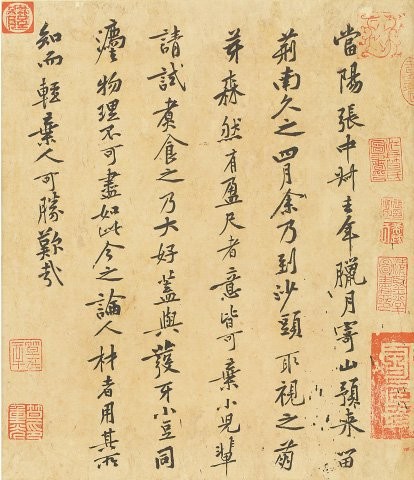 當陽張中叔去年臘月寄山預來留
荊南久之四月余乃到沙頭取視之萌
芽森然有盈尺者意皆可棄小兒輩
請試煮食之乃大好蓋與蕟牙小豆同
灋物理不可盡如此今之論人材者用其所
知而輕棄人可勝歎哉